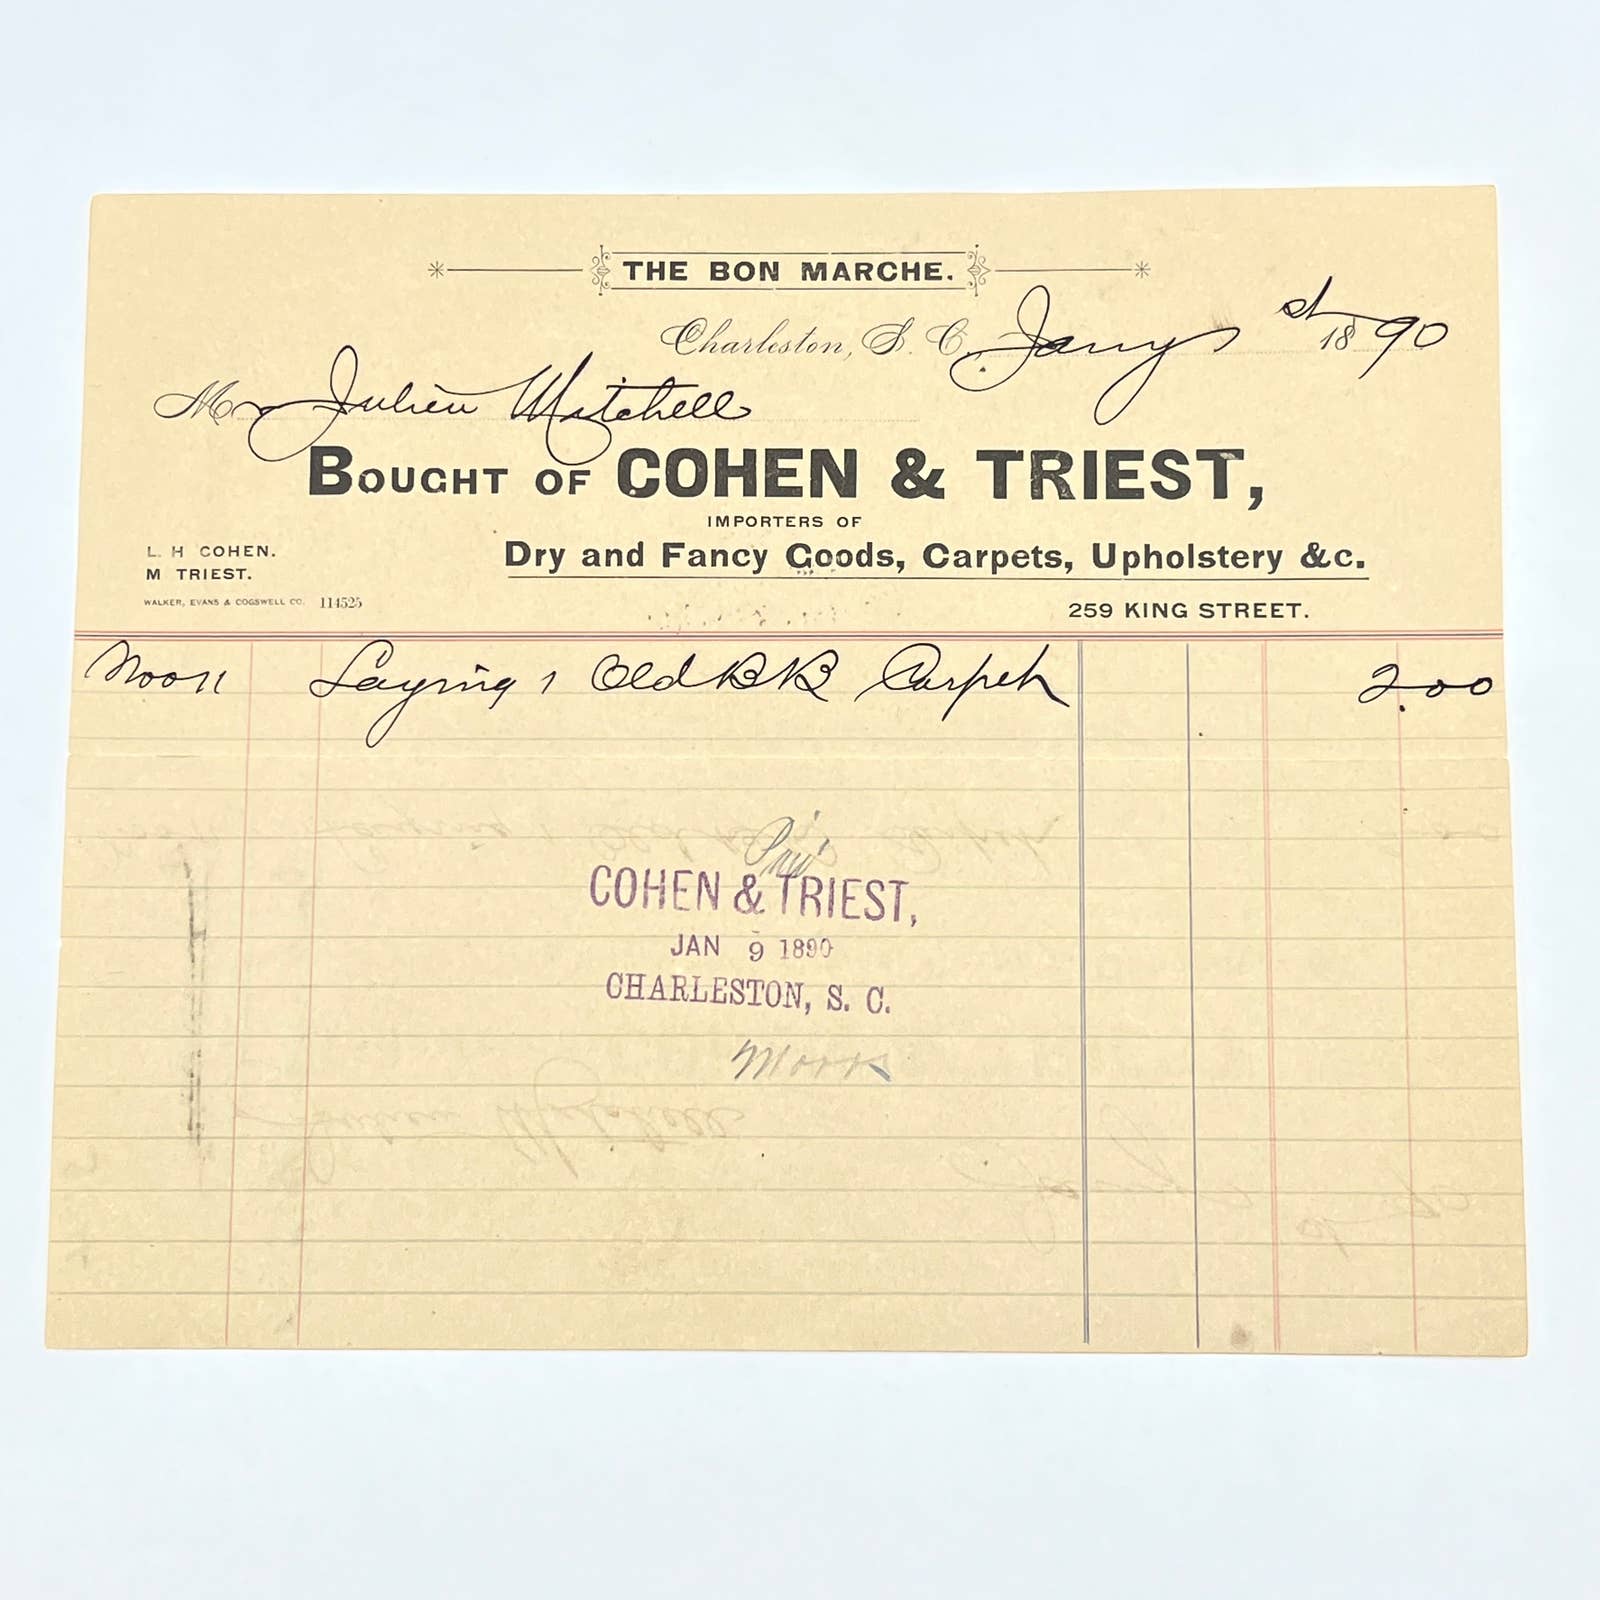 THE BON MARCHE.
Charleston, S. C. Jany 1st 1890
Mr Julien Mitchell
BOUGHT OF COHEN & TRIEST,
IMPORTERS OF
Dry and Fancy Goods, Carpets, Upholstery &c.
L. H COHEN.
M TRIEST.
WALKER, EVANS & COGSWELL CO. 114525
259 KING STREET.
Laying 1 Old BB Carpet 2.00
COHEN & TRIEST,
JAN 9 1890
CHARLESTON, S. C.